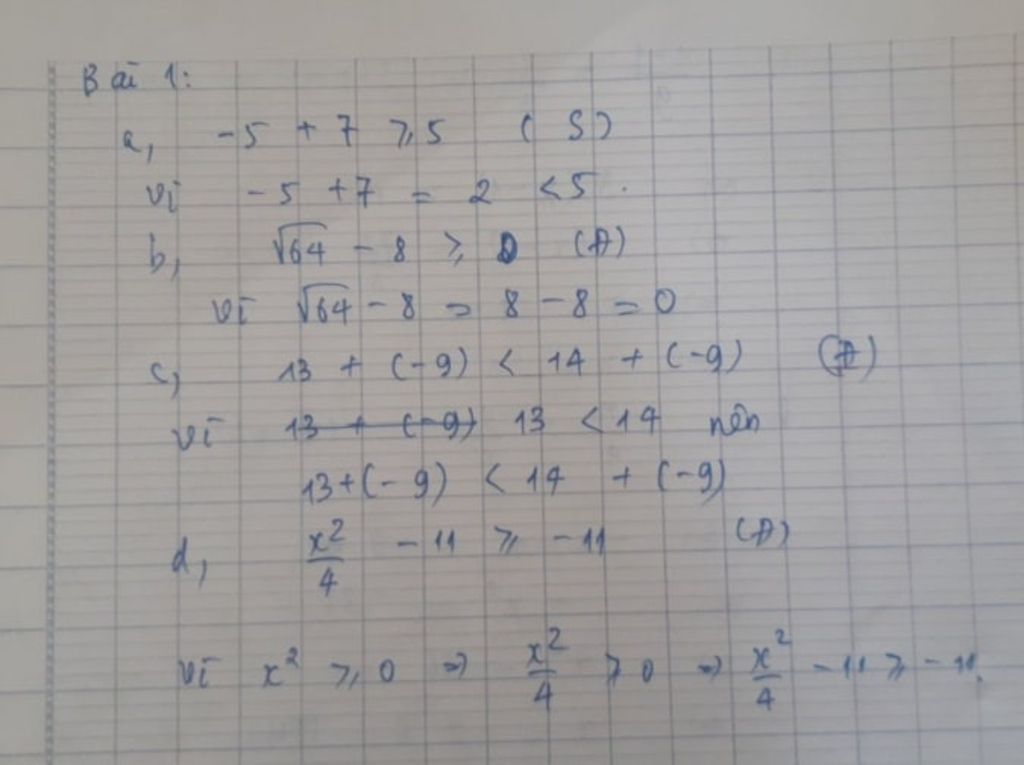 Bài 1:
a, -5 + 7 ≥ 5 (S)
Vì -5 + 7 = 2 < 5.
b, √64 - 8 ≥ 0 (Đ)
Vì √64 - 8 = 8 - 8 = 0
c, 13 + (-9) < 14 + (-9) (Đ)
Vì 13 + (-9) 13 < 14 nên
13+(-9) < 14 + (-9)
d, x²/4 - 11 ≥ -11 (Đ)
Vì x² ≥ 0 => x²/4 ≥ 0 => x²/4 - 11 ≥ -11.